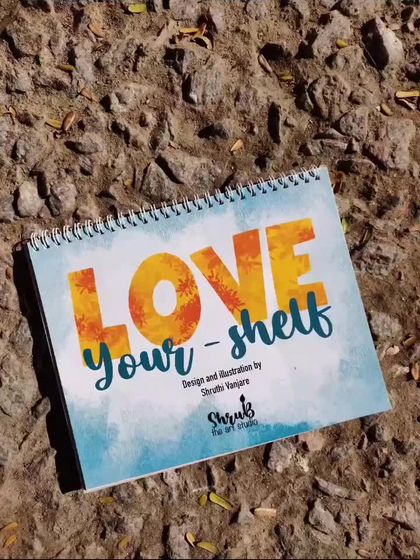 LOVE
your-shelf
Design and illustration by
Shruthi Vanjare
Shrub
the art studio